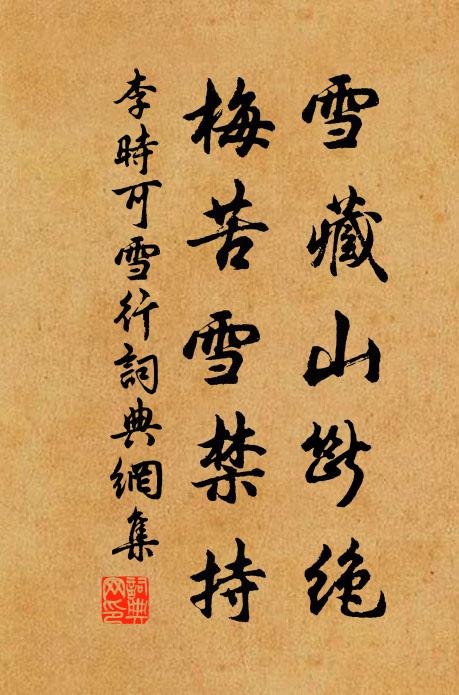 雪藏山斷絶
梅苦雪禁持
李時可雪行詞典網集
詞典網印